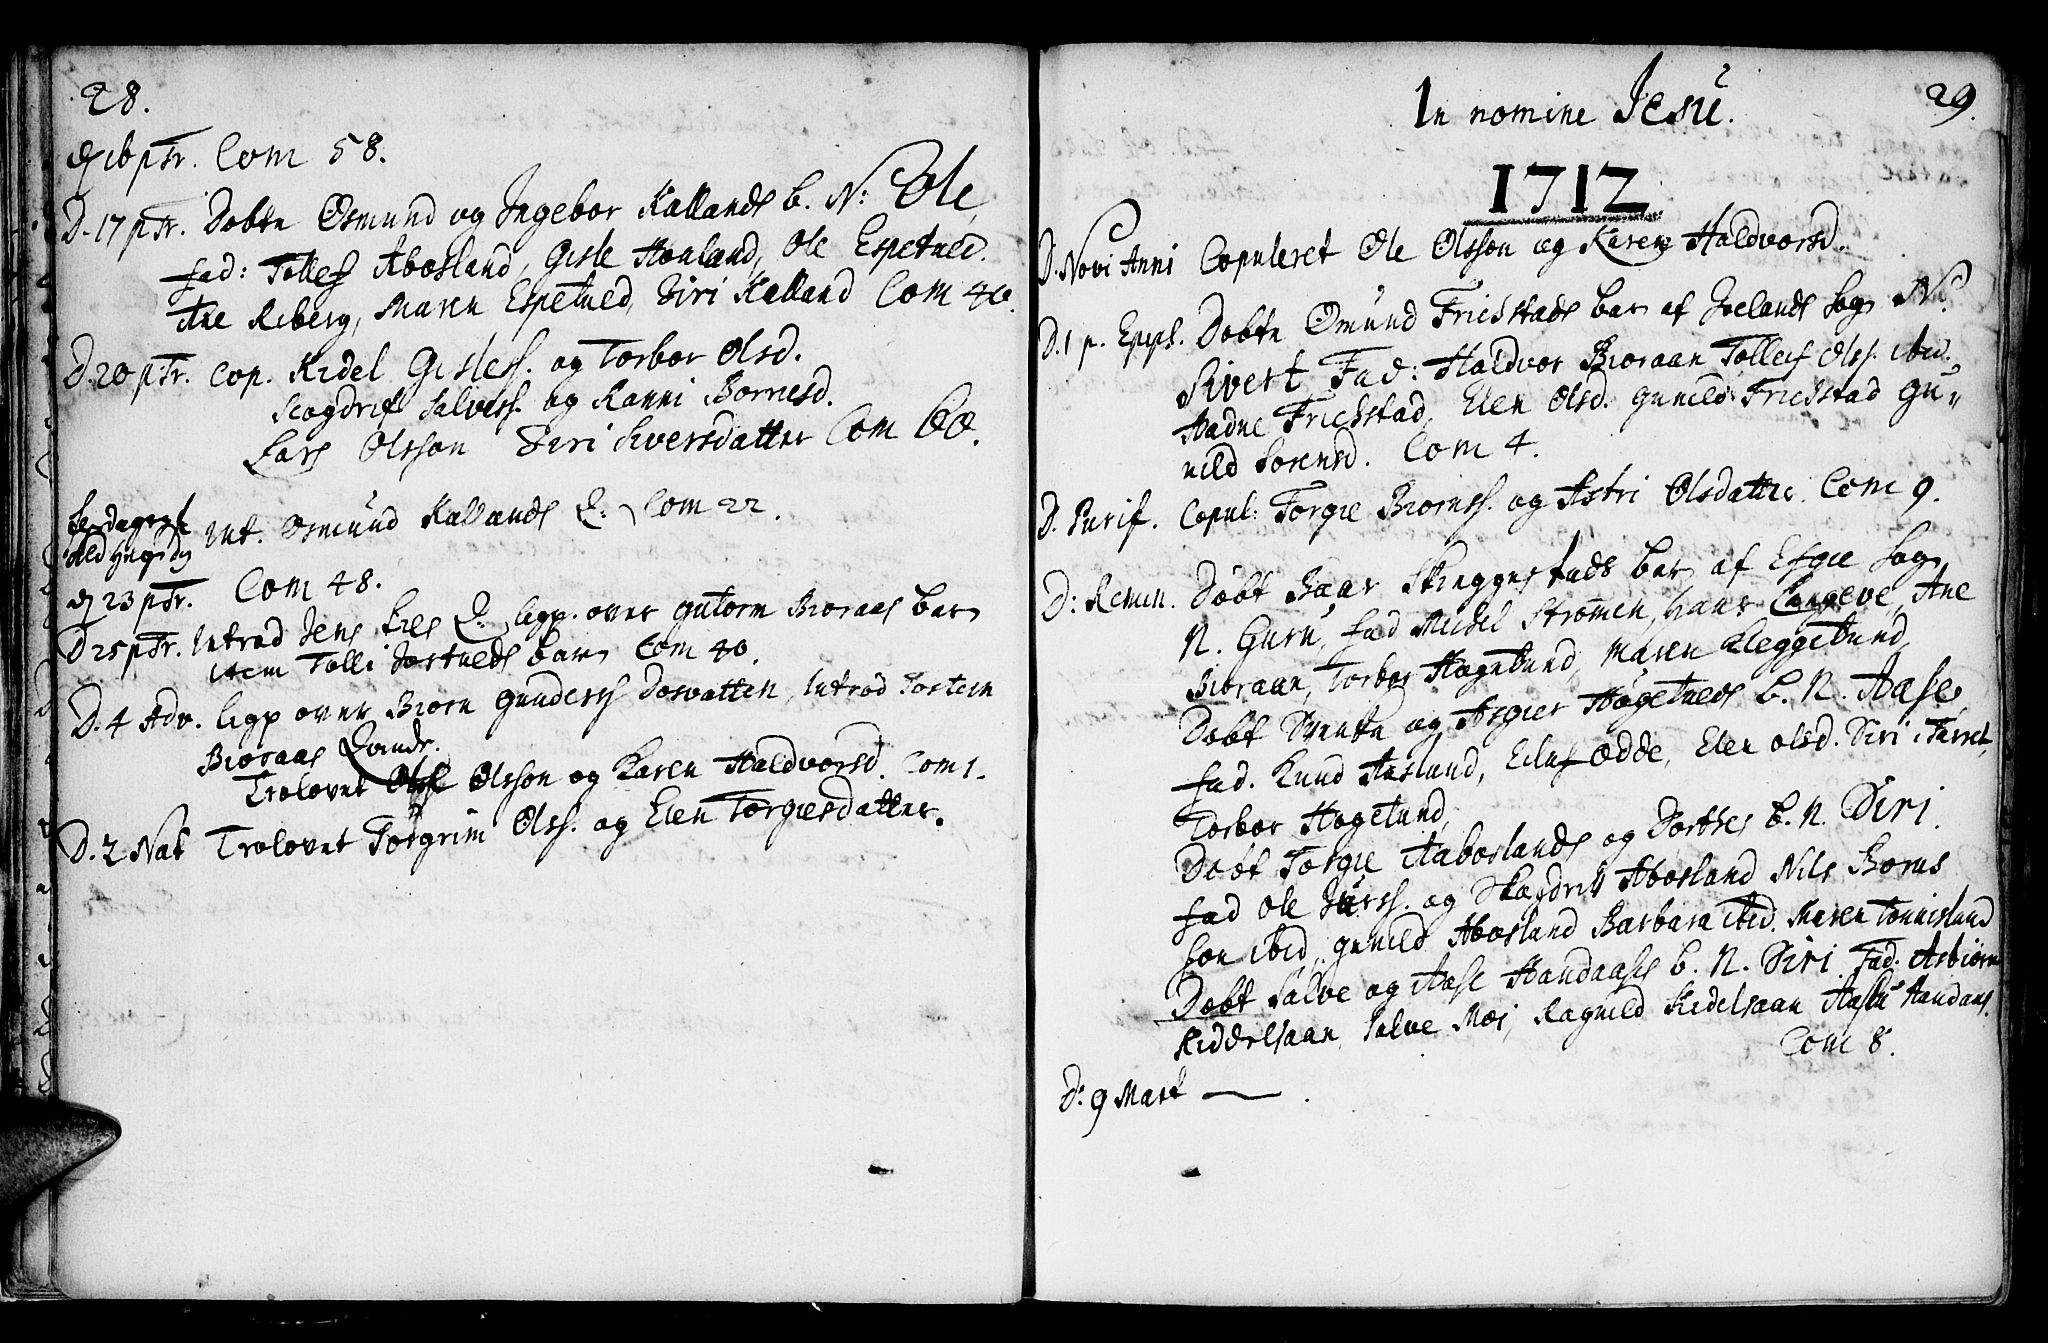 28.
D 16 p Tr. Com 58.
D. 17 p Tr. Døbte Osmund og Ingebor Kallands b. N: Ole,
fad: Tollef Abosland, Gisle Honland, Ole Espetued.
Ane Reberg, Maren Espetued, Siri Kalland Com 40.
D. 20 p Tr. Cop. Kedel Gislefs. og Torbor Olsd.
Scogdrif Salvess. og Ranni Borresd.
Lars Olsson Siri Siversdatter Com 60.
Int. Osmund Kallands Q. Com 22.
D 23 p Tr. Com 48.
D 25 p Tr. Introd Jens Q. ligp. over Gutorm Bioraas barn
item Tolli barn Com 40.
D. 4 Adv. ligp over Biorn Gunders Dosvatten, Introd Tostein
Bioraas Qvinde.
Trolovet Olsson og Karen Haldvorsd. Com 1.
D. 2 Nat Trolovet Torgrim Olss. og Elen Torgiersdatter.
29.
In nomine Jesu.
1712
D. Novi Anni Copuleret Ole Olsson og Karen Haldvorsd.
D. 1 p. Epph. Døbte Omund Friestads barn af Ivelands Sogn N.
Sivert Fad: Haldvor Bioraan Tollef Olss. ibid.
Hadne Friestad, Elen Olsd. Gunild Friestad Gu-
nild Sorensd. Com 4.
D. Purif. Copul: Torgie Biornss. og Astri Olsdatter. Com 9.
D: Remin. Døbt Baar Skieggestads barn af Efgie Sogn
N. Guru, fad Medel Strømen, Hans Longeve, Ane
Bioraan, Torbor Hagetund, Maren Kleggetund,
Døbt Svente og Asgier Høgetueds b. N. Aase,
fad. Knud Aasland, Ædde, Elen Olsd. Siri Tarret,
Torbor Hagetund,
Døbt Torgie Aaboslands og Dorthes b. N. Siri.
fad Ole og Skogdrif Abosland Nils Borns
son ibid, Gunild Abosland Barbara ibid. Maren Tonnislund
Døbt Salve og Aase Handaases b. N. Siri. Fad. Asbiørn
Kiddelsaan, Salve Moi, Ragnild Kedelsaan Handaas.
Com 8.
D: 9 Mart